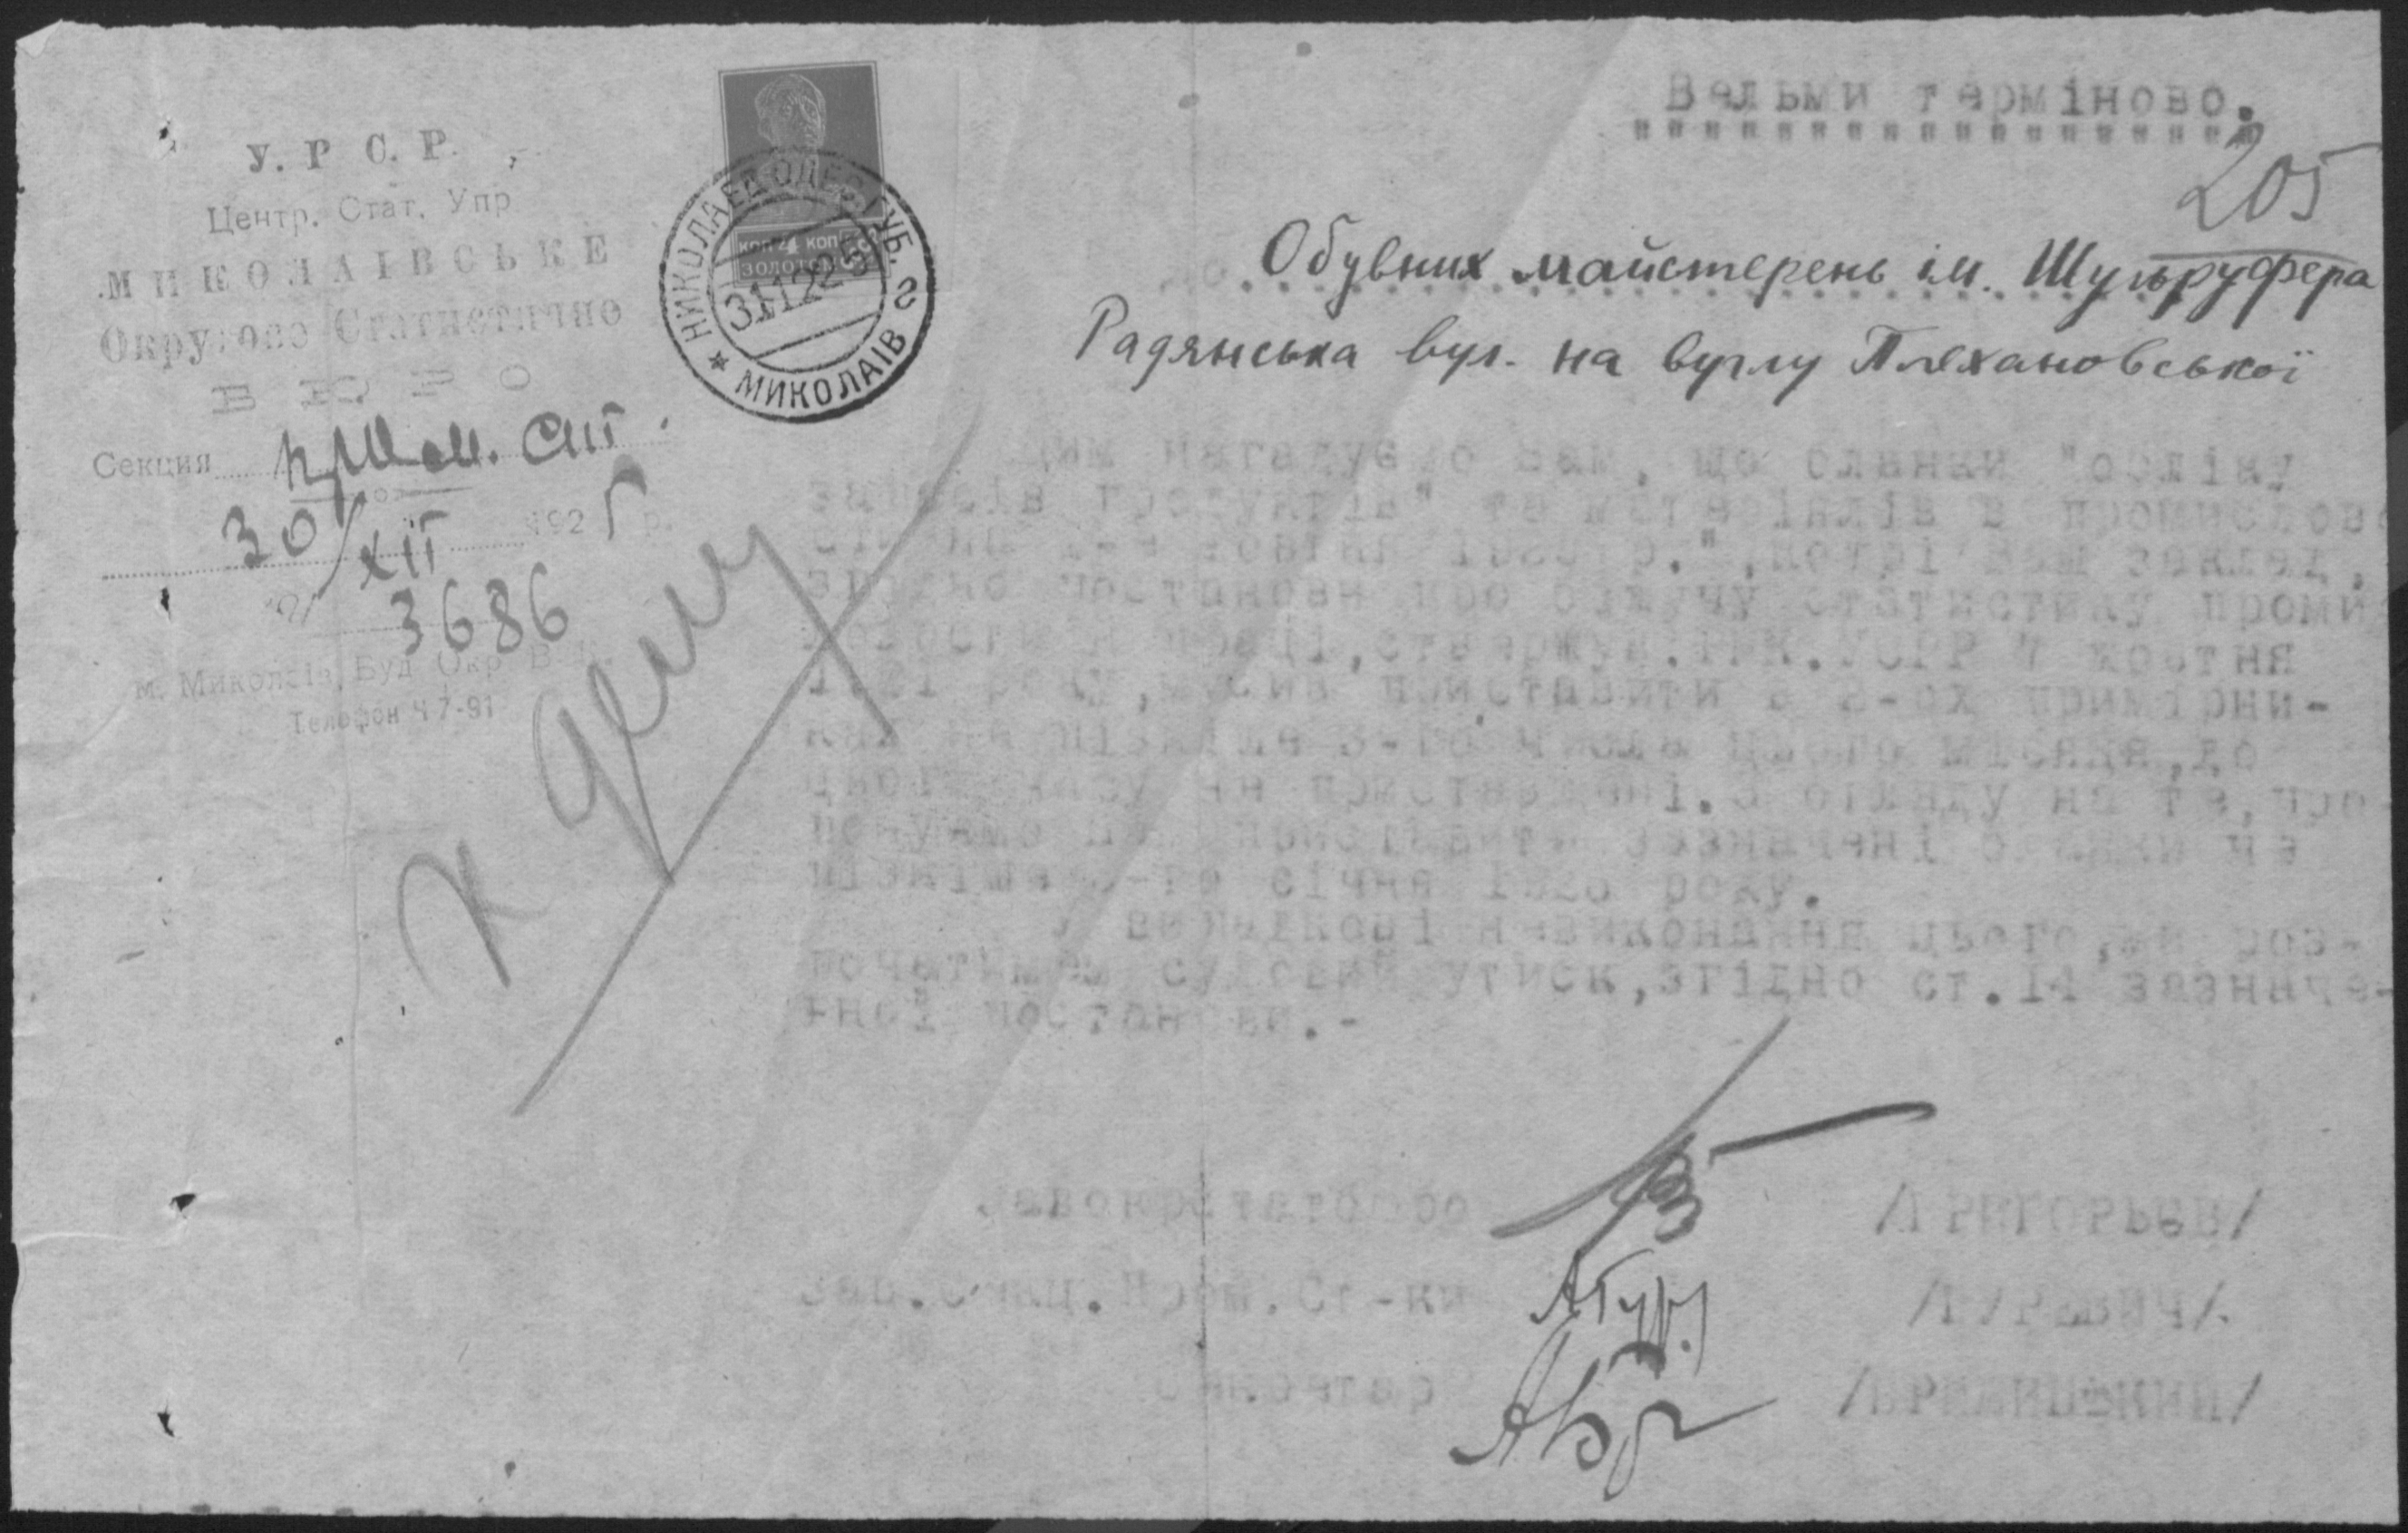 У. Р С. Р.
Центр. Стат. Упр
МИКОЛАІВСЬКЕ
Округове Статистично
БЮРО
Секция пром. стт.
30/XII 1925 р.
3686
м. Миколаів, Буд Окр В. К.
Телефон Ч 7-91
КОП 4 КОП
ЗОЛОТОМ
НИКОЛАЕВ ОДЕС. ГУБ.
31 12 25
МИКОЛАІВ
Вельми терміново.
205
Обувних майстерень ім. Шульруфера
Радянська вул. на вуглу Плехановської
К делу
Цим нагадуємо вам, що бланки "обліку
запасів продуктів" та матеріялів в промислово
1925 р.", котрі ваш заклад,
згідно постанови про біжучу статистику проми
праці, ствержен. РНК. УСРР 7 жовтня
року, мусив приставити в 3-ох примірни-
ках не пізніше 3-го числа цього місяця, до
цього часу не приставлені. З огляду на те, про-
понуємо вам приставити зазначені бланки не
пізніше -го січня 1926 року.
У випадкові невиконання цього, ми роз-
початимем судовий утиск, згідно ст. 14 зазначе-
нної постанови.-
Завокрстатбюро /ГРИГОРЬЕВ/
Зав. Секц. Пром. Ст-ки /ГУРЕВИЧ/.
Секретар